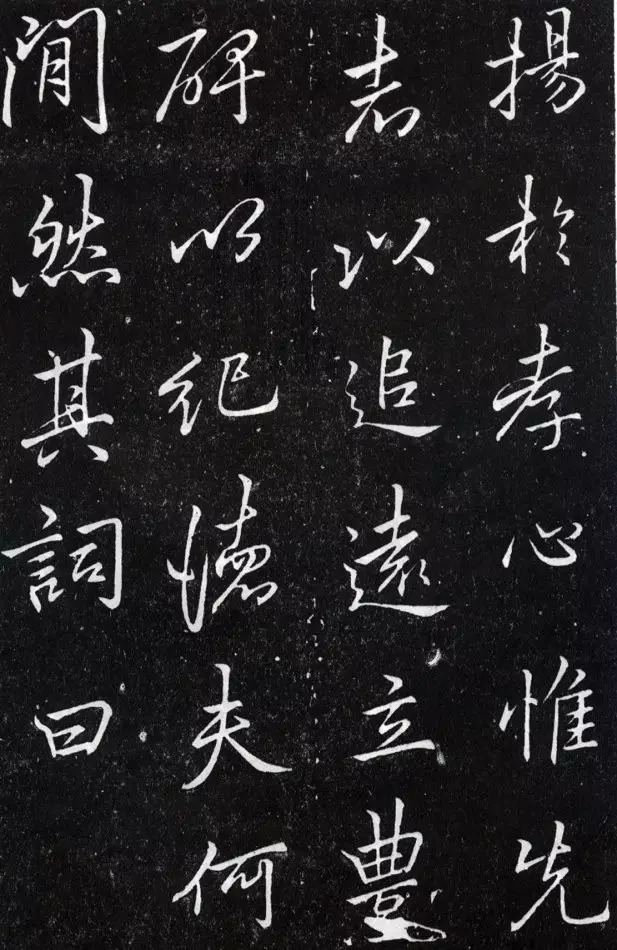 揚於孝心惟先
者以追遠立豐
碑以紀德夫何
閒然其詞曰